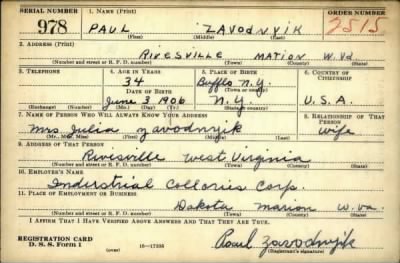 SERIAL NUMBER 1. NAME (Print) ORDER NUMBER
978 PAUL ZAVODNYIK 2515
(First) (Middle) (Last)
2. ADDRESS (Print)
RIVESVILLE MARION W. Va.
(Number and street or R. F. D. number) (Town) (County) (State)
3. TELEPHONE 4. AGE IN YEARS 5. PLACE OF BIRTH 6. COUNTRY OF CITIZENSHIP
34 Bufflo N.Y.
DATE OF BIRTH (Town or county)
June 3 1906 N.Y. U.S.A.
(Exchange) (Number) (Mo.) (Day) (Yr.) (State or country)
7. NAME OF PERSON WHO WILL ALWAYS KNOW YOUR ADDRESS 8. RELATIONSHIP OF THAT PERSON
Mrs Julia Zavodnyik wife
(Mr., Mrs., Miss) (First) (Middle) (Last)
9. ADDRESS OF THAT PERSON
Rivesville West Virginia
(Number and street or R. F. D. number) (Town) (County) (State)
10. EMPLOYER'S NAME
Industrial Collories Corp.
11. PLACE OF EMPLOYMENT OR BUSINESS
Dakota Marion W. Va.
(Number and street or R. F. D. number) (Town) (County) (State)
I AFFIRM THAT I HAVE VERIFIED ABOVE ANSWERS AND THAT THEY ARE TRUE.
REGISTRATION CARD
D. S. S. Form 1 16—17105 Paul Zavodnyik
(Registrant's signature)